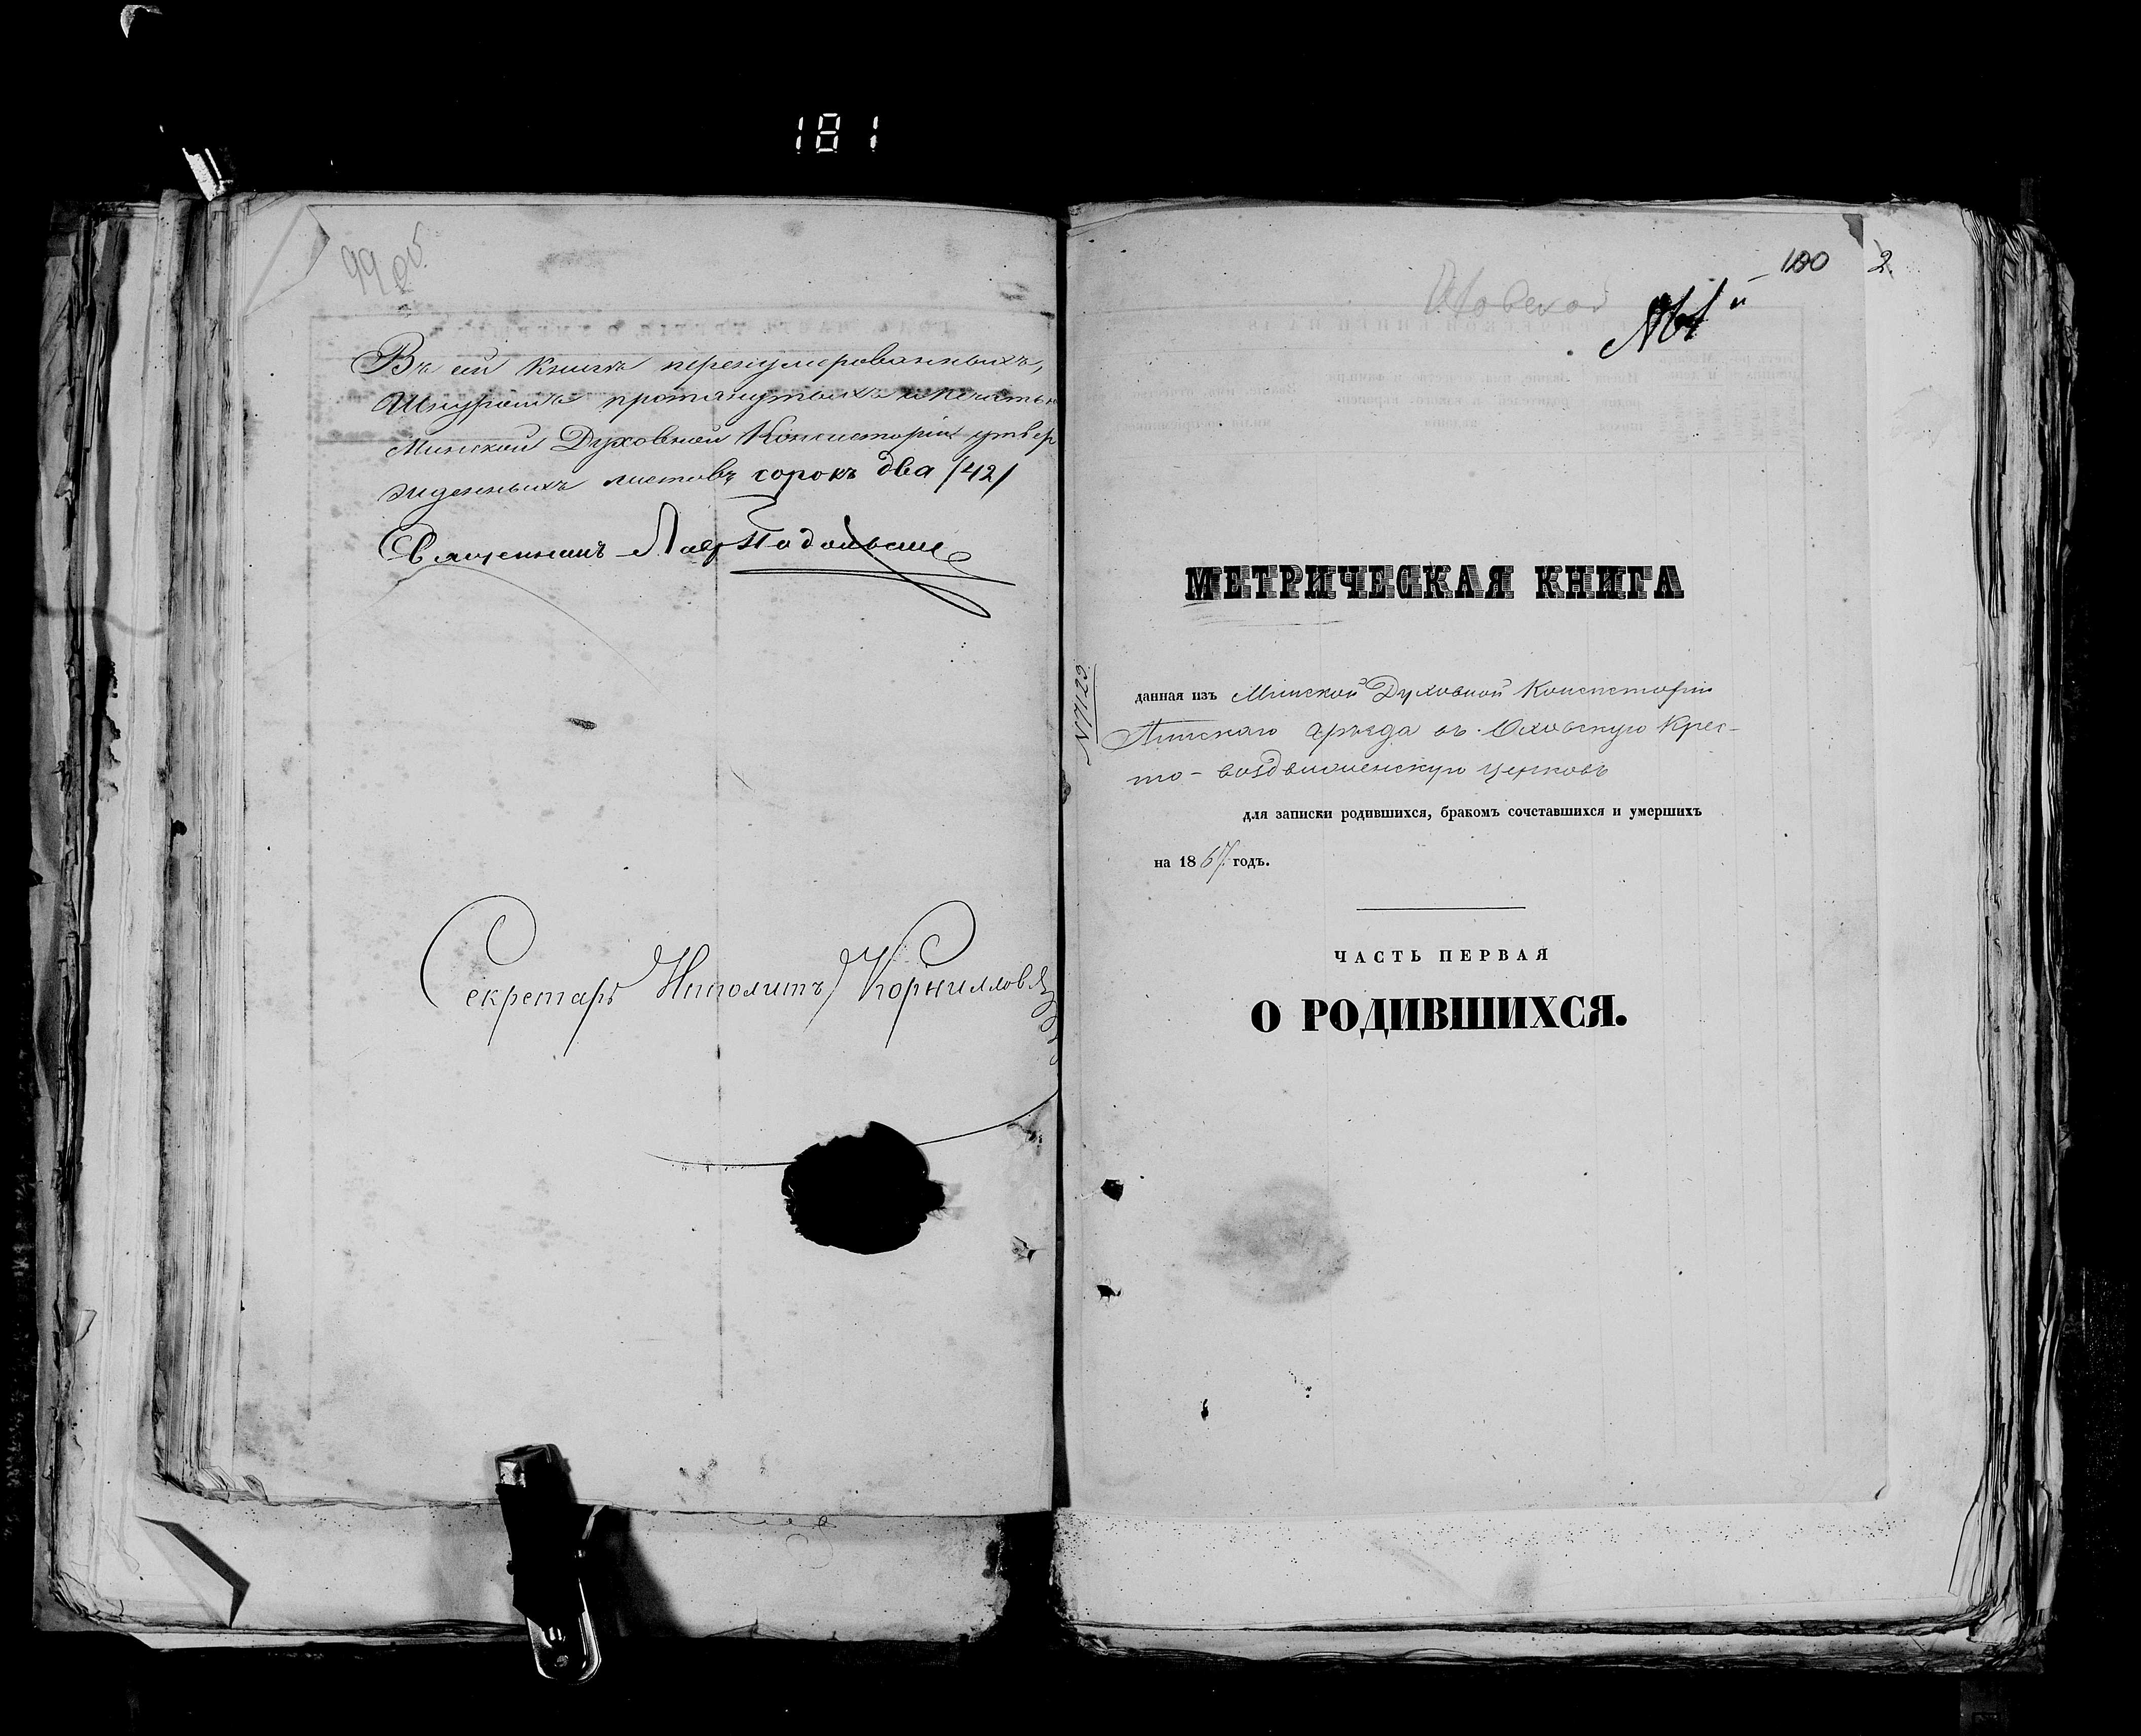 181
99 об.
Въ сей книгѣ перенумерованныхъ,
Шнуромъ протянутыхъ и печатью
Минской Духовной Консисторіи утвер
жденныхъ листовъ сорокъ два /42/
Священникъ
Секретарь Ипполитъ Корниллов
100 2
№ 1й
МЕТРИЧЕСКАЯ КНИГА
№ 7123
данная изъ Минской Духовной Консисторіи
Пинскаго уѣзда въ Охо́вскую Крес-
то-воздвиженскую церковь
для записки родившихся, бракомъ сочетавшихся и умершихъ
на 1867 годъ.
ЧАСТЬ ПЕРВАЯ
О РОДИВШИХСЯ.